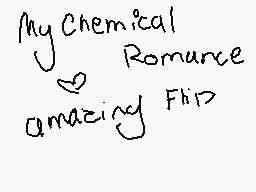 My Chemical
Romance
amazing Flip